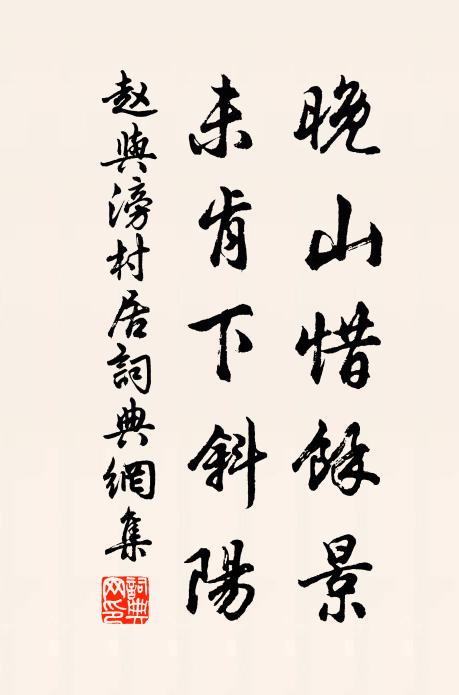 晚山惜餘景
未肯下斜陽
赵與滂村居詞典網集
詞典网印